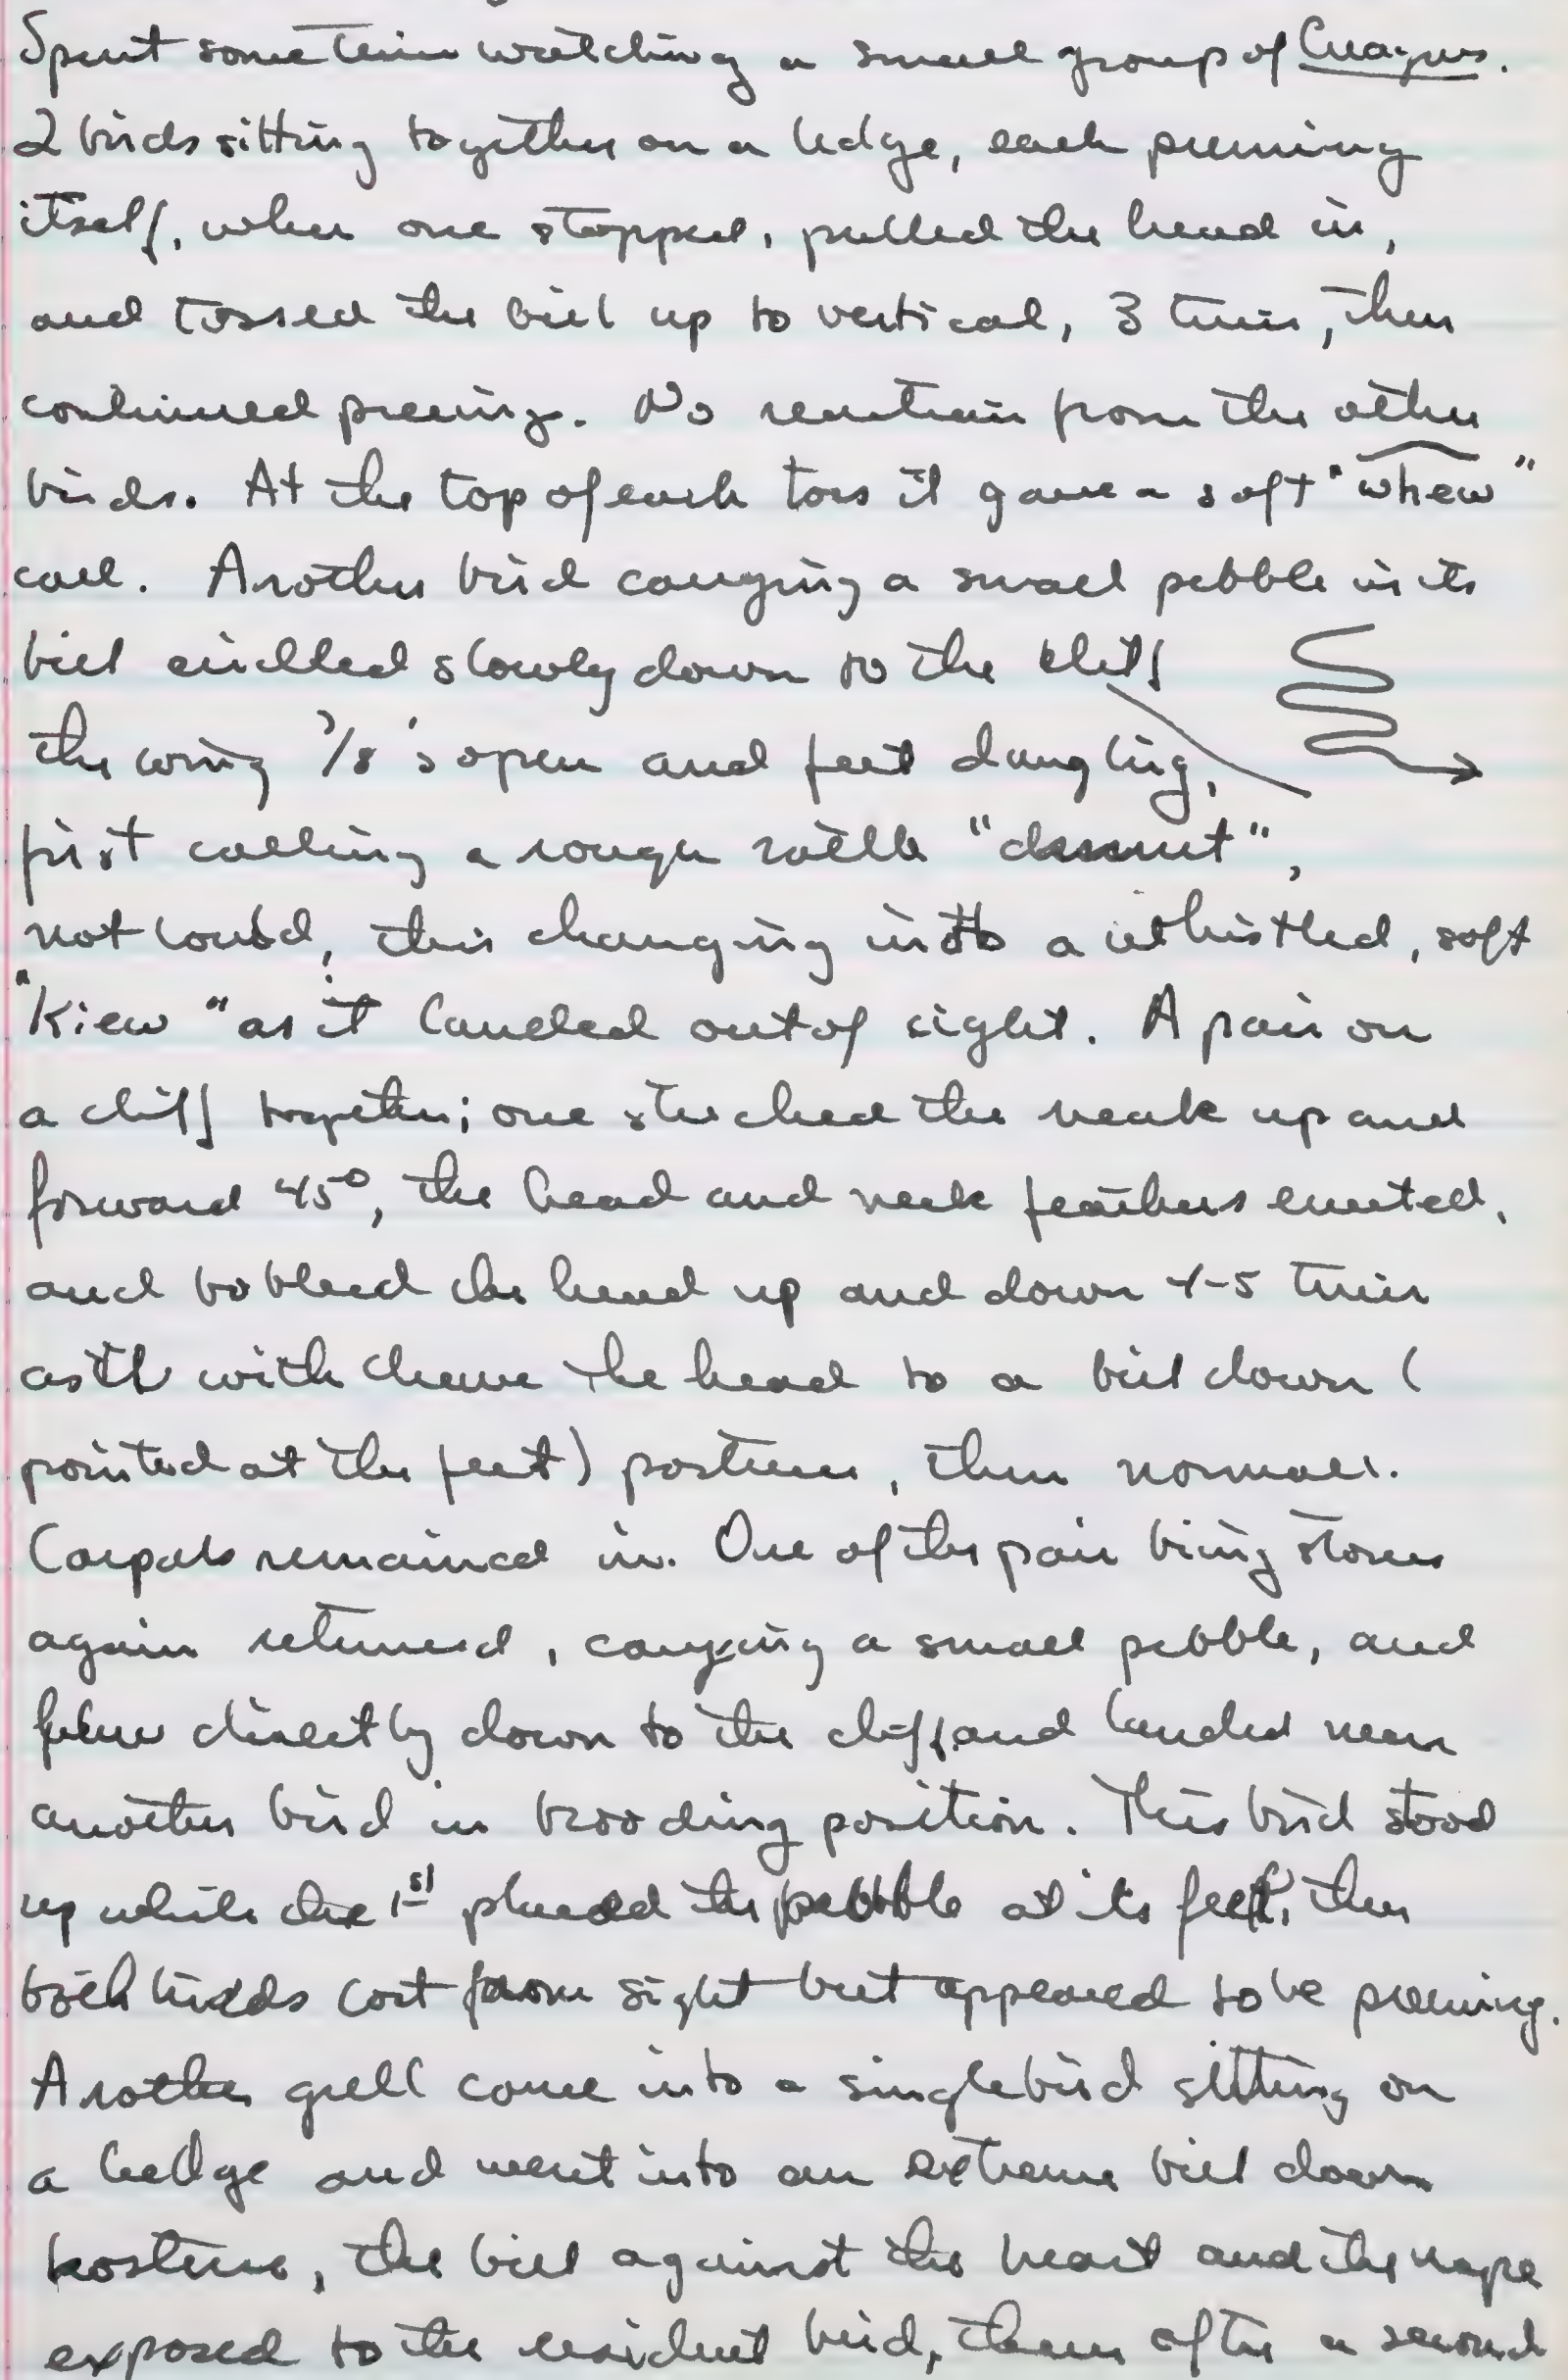 Spent some time watching a small group of Creagrus.
2 birds sitting together on a ledge, each preening
itself, when one stopped, pulled the head in,
and tossed the bill up to vertical, 3 times, then
continued preening. No reaction from the other
birds. At the top of each toss it gave a soft "whew"
call. Another bird carrying a small pebble in its
bill circled slowly down to the cliff
the wing 7/8's open and feet dangling,
first calling a rough rattle
not loud, this changing into a whistled, soft
"Kiew" as it landed out of sight. A pair on
a cliff together; one stretched the neck up and
forward 45°, the head and neck feathers erected,
and bobbed the head up and down 4-5 times
the head to a bill down (
pointed at the feet) posture, then normal.
Carpals remained in. One of the pair being
again returned, carrying a small pebble, and
flew directly down to the cliff and landed near
another bird in brooding position. This bird stood
up while the 1st placed the pebble at its feet, then
both birds lost from sight but appeared to be preening.
Another gull came into a single bird sitting on
a ledge and went into an extreme bill down
posture, the bill against the and the nape
exposed to the resident bird, then after a second